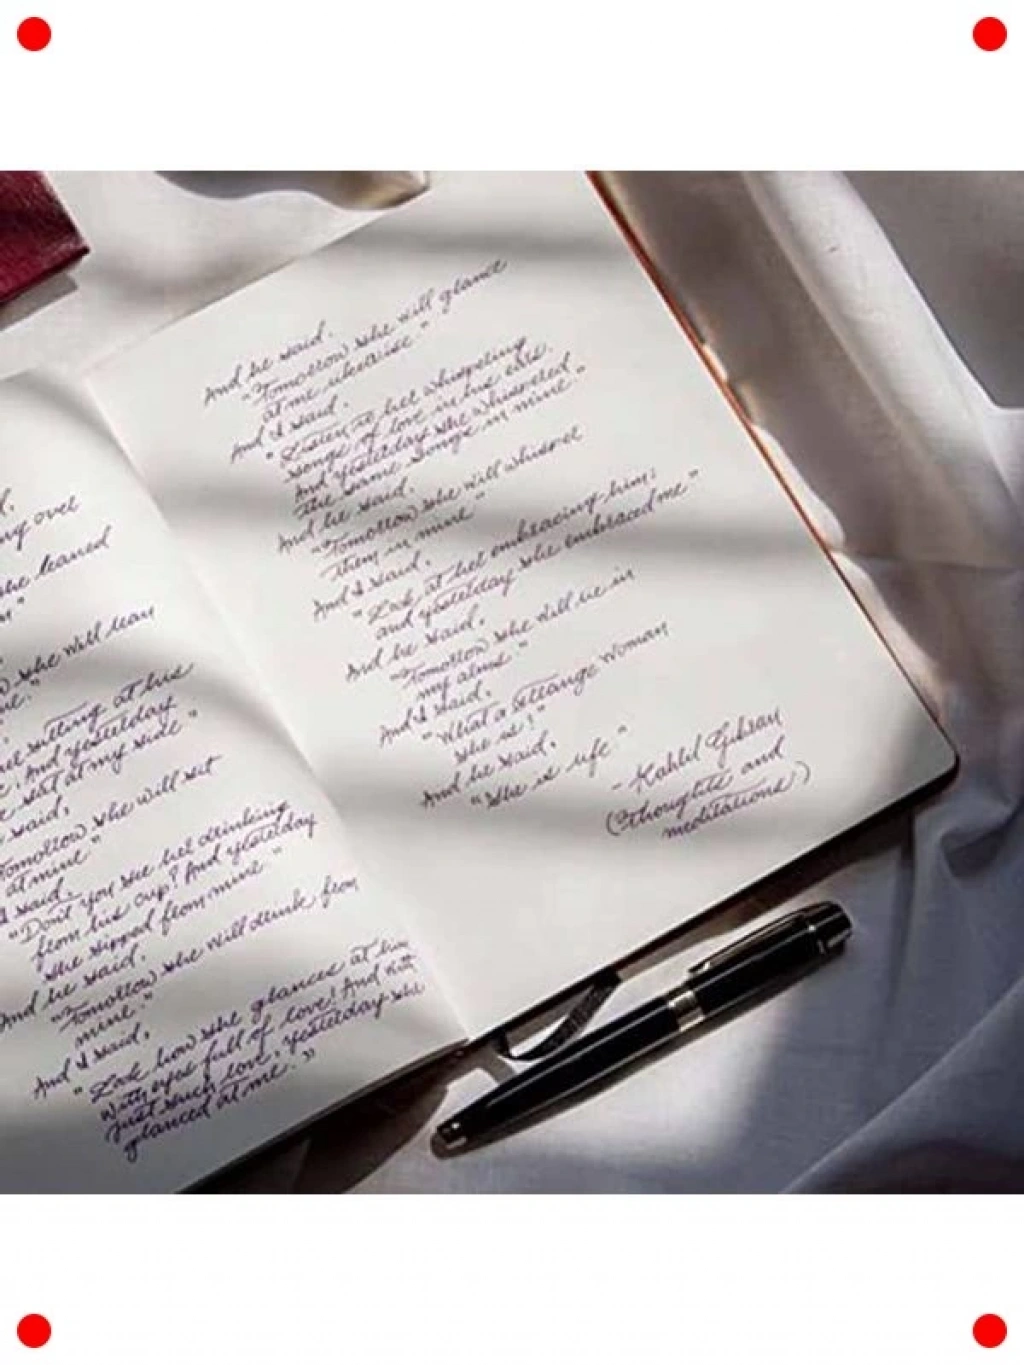 d,
ng over
she leaned
"
w she will lean
me."
her sitting at his
; And yesterday
she sat at my side"
I said,
Tomorrow she will sit
at mine"
I said,
"Don't you see her drinking
from his cup? And yesterday
she sipped from mine"
And he said,
"Tomorrow she will drink from
mine."
And I said,
"Look how she glances at him
With eyes full of love! And with
just such love, yesterday she
glanced at me."
And he said,
"Tomorrow she will glance
at me likewise"
And I said,
"Listen to her whispering
songs of love in his ears.
And yesterday she whispered
the same songs in mine."
And he said,
"Tomorrow she will whisper
them in mine"
And I said,
"Look at her embracing him;
and yesterday she embraced me"
And he said,
"Tomorrow she will lie in
my arms"
And I said,
"What a strange woman
she is!"
And he said,
"She is life"
- Kahlil Gibran
(Thoughts and
meditations)